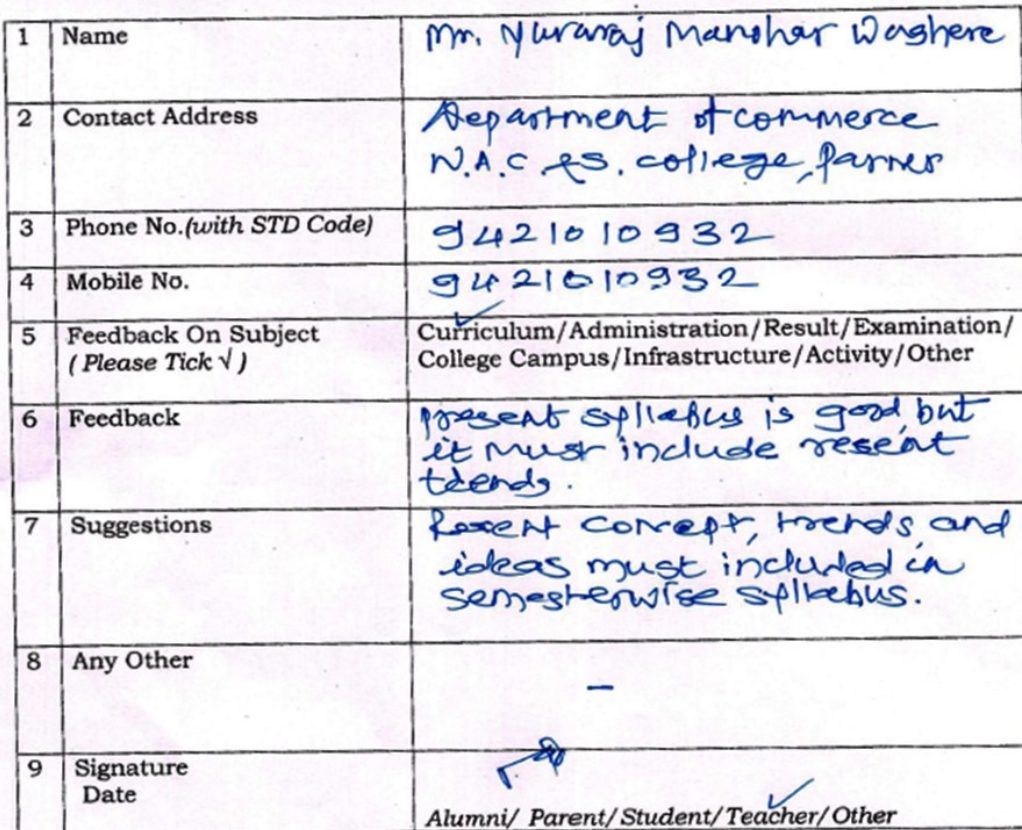 1 Name Mr. Yuvaraj Manohar Waghere
2 Contact Address Department of commerce
N.A.C. &S. college, parner
3 Phone No.(with STD Code) 9421010932
4 Mobile No. 9421010932
5 Feedback On Subject Curriculum/Administration/Result/Examination/
( Please Tick √ ) College Campus/Infrastructure/Activity/Other
6 Feedback present syllabus is good, but
it must include resent
trends.
7 Suggestions Resent concept, trends, and
ideas must included in
semesterwise syllabus.
8 Any Other –
9 Signature
Date Alumni/ Parent/Student/Teacher/Other